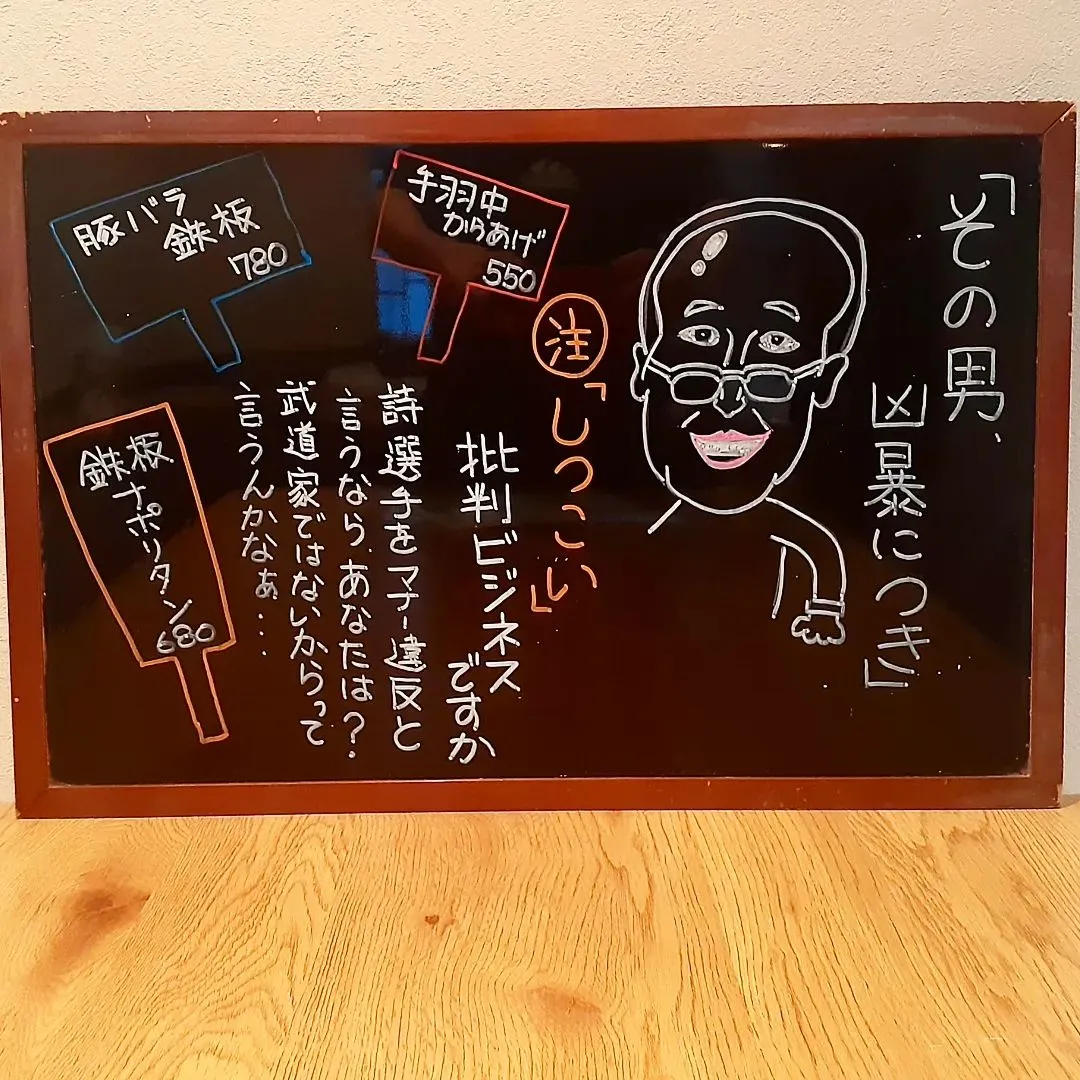 「その男、
凶暴につき」
注「しつこい」
批判ビジネス
ですか
詩選手をマナー違反と
言うなら、あなたは?
武道家ではないからって
言うんかなぁ...
手羽中
からあげ
550
豚バラ
鉄板
780
鉄板
ナポリタン
680